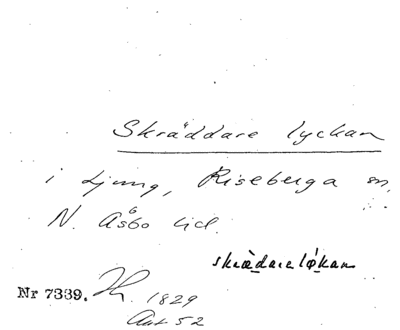 Skräddare lyckan
i Ljung, Riseberga sn,
N. Åsbo hd.
skrädareløkan
Nr 7339. 1829
Avt 52